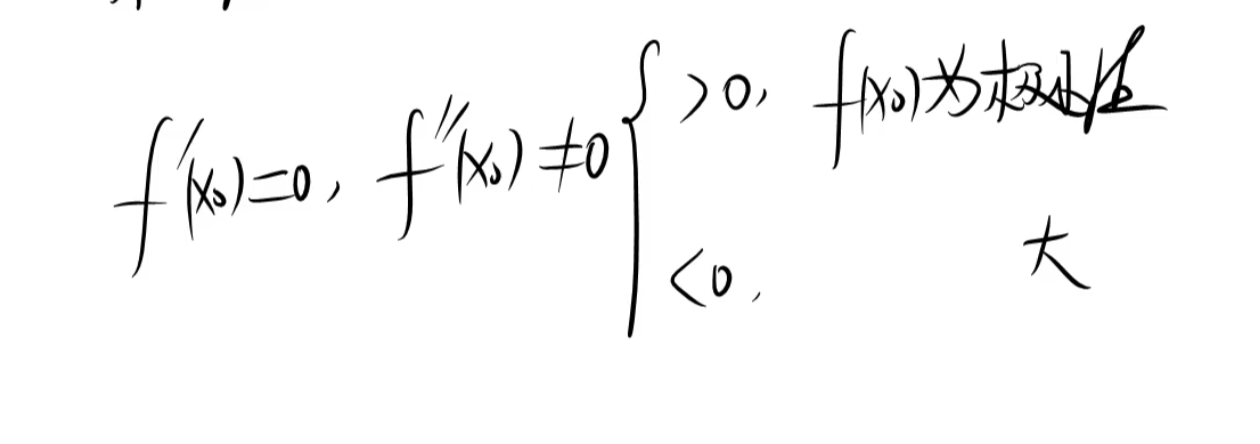 f'(x₀)=0, f''(x₀)≠0 { >0, f(x₀)为极小值
<0, 大